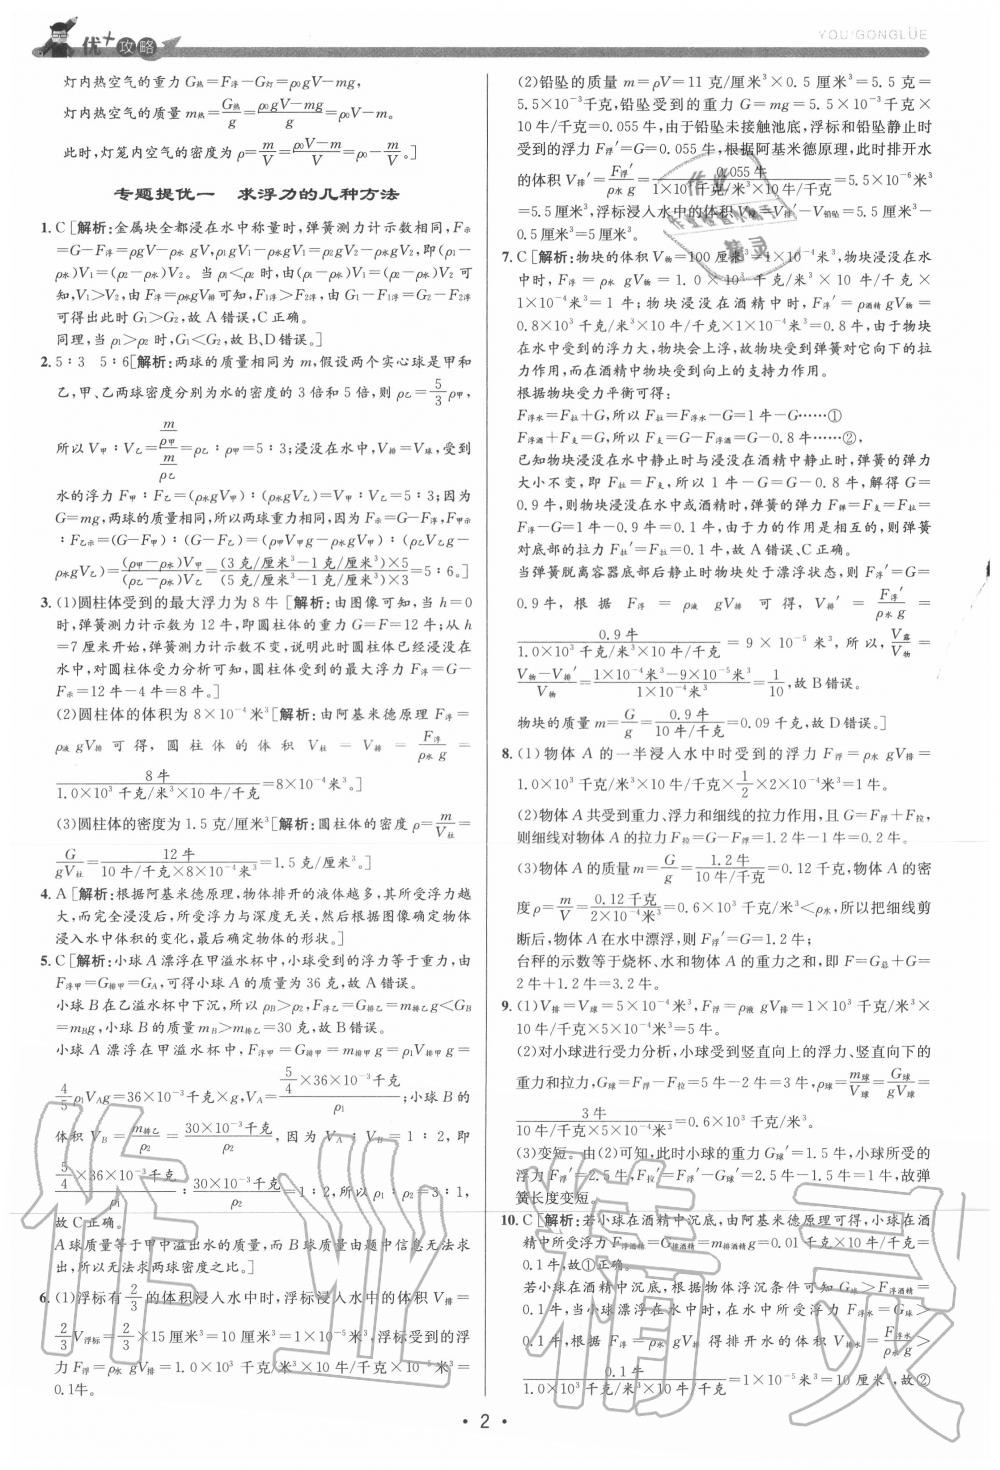 优+攻略
YOU+GONGLÜE
灯内热空气的重力 G热=F浮-G灯=ρ0gV-mg,
灯内热空气的质量 m热=G热/g=(ρ0gV-mg)/g=ρ0V-m。
此时,灯笼内空气的密度为 ρ=m/V=(ρ0V-m)/V=ρ0-m/V。]
专题提优一 求浮力的几种方法
1. C [解析:金属块全都浸在水中称量时,弹簧测力计示数相同,F示
=G-F浮=ρgV-ρ水 gV,ρ1gV1-ρ水gV1=ρ2gV2-ρ水gV2,即(ρ1-
ρ水)V1=(ρ2-ρ水)V2。当 ρ1<ρ2 时,由(ρ1-ρ水)V1=(ρ2-ρ水)V2 可
知,V1>V2,由 F浮=ρ水gV排可知,F1浮>F2浮,由 G1-F1浮=G2-F2浮
可得出此时 G1>G2,故 A 错误,C 正确。
同理,当 ρ1>ρ2 时,G1<G2,故 B、D 错误。]
2. 5∶3 5∶6[解析:两球的质量相同为 m,假设两个实心球是甲和
乙,甲、乙两球密度分别为水的密度的 3 倍和 5 倍,则 ρ乙=5/3 ρ甲,
所以 V甲∶V乙=(m/ρ甲)/(m/ρ乙)=ρ乙∶ρ甲=5∶3;浸没在水中,V排=V球,受到
水的浮力 F甲∶F乙=(ρ水gV甲)∶(ρ水gV乙)=V甲∶V乙=5∶3;因为
G=mg,两球的质量相同,所以两球重力相同,因为 F示=G-F浮,F甲示
∶F乙示=(G-F甲)∶(G-F乙)=(ρ甲V甲g-ρ水gV甲)∶(ρ乙V乙g-
ρ水gV乙)=(ρ甲-ρ水)V甲/(ρ乙-ρ水)V乙=(3 克/厘米³-1 克/厘米³)×5/(5 克/厘米³-1 克/厘米³)×3=5∶6。]
3. (1)圆柱体受到的最大浮力为 8 牛 [解析:由图像可知,当 h=0
时,弹簧测力计示数为 12 牛,即圆柱体的重力 G=F=12 牛;从 h
=7 厘米开始,弹簧测力计示数不变,说明此时圆柱体已经浸没在
水中,对圆柱体受力分析可知,圆柱体受到的最大浮力 F浮=G-
F示=12 牛-4 牛=8 牛。]
(2)圆柱体的体积为 8×10⁻⁴ 米³ [解析:由阿基米德原理 F浮=
ρ液 gV排 可得,圆柱体的体积 V柱=V排=F浮/ρ水 g=
8 牛/1.0×10³ 千克/米³×10 牛/千克=8×10⁻⁴ 米³。]
(3)圆柱体的密度为 1.5 克/厘米³ [解析:圆柱体的密度 ρ=m/V柱=
G/gV柱=12 牛/10 牛/千克×8×10⁻⁴ 米³=1.5 克/厘米³。]
4. A [解析:根据阿基米德原理,物体排开的液体越多,其所受浮力越
大,而完全浸没后,所受浮力与深度无关,然后根据图像确定物体
浸入水中体积的变化,最后确定物体的形状。]
5. C [解析:小球 A 漂浮在甲溢水杯中,小球受到的浮力等于重力,由
F浮甲=G排甲=GA,可得小球 A 的质量为 36 克,故 A 错误。
小球 B 在乙溢水杯中下沉,所以 ρB>ρ2,F浮乙=G排乙=m排乙g<GB
=mBg,小球 B 的质量 mB>m排乙=30 克,故 B 错误。
小球 A 漂浮在甲溢水杯中,F浮甲=G排甲=m排甲g=ρ1V排甲g=
4/5 ρ1VAg=36×10⁻³千克×g,VA=(5/4×36×10⁻³千克)/ρ1;小球 B 的
体积 VB=m排乙/ρ2=30×10⁻³千克/ρ2,因为 VA∶VB=1∶2,即
(5/4×36×10⁻³千克)/ρ1∶30×10⁻³千克/ρ2=1∶2,所以 ρ1∶ρ2=3∶1,
故 C 正确。
A 球质量等于甲中溢出水的质量,而 B 球质量由题中信息无法求
出,所以无法求两球密度之比。]
6. (1)浮标有 2/3 的体积浸入水中时,浮标浸入水中的体积 V排=
2/3 V浮标=2/3×15 厘米³=10 厘米³=1×10⁻⁵米³,浮标受到的浮
力 F浮=ρ水 gV排=1.0×10³ 千克/米³×10 牛/千克×1×10⁻⁵米³=
0.1牛。
(2)铅坠的质量 m=ρV=11 克/厘米³×0.5 厘米³=5.5 克=
5.5×10⁻³千克,铅坠受到的重力 G=mg=5.5×10⁻³千克×
10 牛/千克=0.055 牛,由于铅坠未接触池底,浮标和铅坠静止时
受到的浮力 F浮′=G=0.055 牛,根据阿基米德原理,此时排开水
的体积 V排′=F浮′/ρ水 g=0.055 牛/1×10³ 千克/米³×10 牛/千克=5.5×10⁻⁶米³
=5.5厘米³,浮标浸入水中的体积 V浸=V排′-V铅坠=5.5厘米³-
0.5厘米³=5厘米³。
7. C [解析:物块的体积V物=100 厘米³=1×10⁻⁴米³,物块浸没在水
中时,F浮=ρ水 gV物=1.0×10³ 千克/米³×10 牛/千克×
1×10⁻⁴米³=1 牛;物块浸没在酒精中时,F浮′=ρ酒精 gV物=
0.8×10³ 千克/米³×10 牛/千克×1×10⁻⁴米³=0.8 牛,由于物块
在水中受到的浮力大,物块会上浮,故物块受到弹簧对它向下的拉
力作用,而在酒精中物块受到向上的支持力作用。
根据物块受力平衡可得:
F浮水=F拉+G,所以 F拉=F浮水-G=1 牛-G……①
F浮酒+F支=G,所以 F支=G-F浮酒=G-0.8 牛……②,
已知物块浸没在水中静止时与浸没在酒精中静止时,弹簧的弹力
大小不变,即 F拉=F支,所以 1 牛-G=G-0.8 牛,解得 G=
0.9 牛,则物块浸没在水中或酒精时,弹簧的弹力 F弹=F支=F拉=
F浮-G=1 牛-0.9 牛=0.1 牛,由于力的作用是相互的,则弹簧
对底部的拉力 F拉′=F拉=0.1 牛,故 A 错误、C 正确。
当弹簧脱离容器底部后静止时物块处于漂浮状态,则 F浮′=G=
0.9 牛,根据 F浮=ρ液 gV排 可得,V排′=F浮′/ρ水 g=
0.9 牛/1.0×10³ 千克/米³×10 牛/千克=9×10⁻⁵ 米³,所以,V露/V物=
(V物-V排′)/V物=(1×10⁻⁴米³-9×10⁻⁵米³)/1×10⁻⁴米³=1/10,故 B 错误。
物块的质量 m=G/g=0.9 牛/10 牛/千克=0.09 千克,故 D 错误。]
8. (1)物体 A 的一半浸入水中时受到的浮力 F浮=ρ水 gV排=
1.0×10³ 千克/米³×10 牛/千克×1/2×2×10⁻⁴米³=1牛。
(2)物体 A 共受到重力、浮力和细线的拉力作用,且 G=F浮+F拉,
则细线对物体 A 的拉力 F拉=G-F浮=1.2 牛-1 牛=0.2 牛。
(3)物体 A 的质量 m=G/g=1.2 牛/10 牛/千克=0.12 千克,物体 A 的密
度 ρ=m/V=0.12 千克/2×10⁻⁴ 米³=0.6×10³ 千克/米³<ρ水,所以把细线剪
断后,物体 A 在水中漂浮,则 F浮′=G=1.2 牛;
台秤的示数等于烧杯、水和物体 A 的重力之和,即 F=G总+G=
2 牛+1.2 牛=3.2 牛。
9. (1)V排=V球=5×10⁻⁴ 米³,F浮=ρ液 gV排=1×10³ 千克/米³×
10 牛/千克×5×10⁻⁴米³=5 牛。
(2)对小球进行受力分析,小球受到竖直向上的浮力、竖直向下的
重力和拉力,G球=F浮-F拉=5 牛-2 牛=3 牛,ρ球=m球/V球=G球/gV球=
3 牛/10 牛/千克×5×10⁻⁴米³=0.6×10³千克/米³。
(3)变短。由(2)可知,此时小球的重力 G球′=1.5 牛,小球所受的
浮力 F浮′=2.5 牛,F拉′=F浮′-G球′=2.5 牛-1.5 牛=1 牛,故弹
簧长度变短。
10. C [解析:若小球在酒精中沉底,由阿基米德原理可得,小球在酒
精中所受浮力 F浮酒精=G排酒精=m排酒精g=0.01 千克×10 牛/千克=
0.1牛,故①正确。
若小球在酒精中沉底,根据物体浮沉条件可知 G球>F浮酒精=
0.1牛,当小球漂浮在水中时,在水中所受浮力 F浮水=G球>
0.1牛,根据 F浮=ρ水 gV排 得排开水的体积 V排水=F浮水/ρ水 g>
0.1牛/1.0×10³ 千克/米³×10 牛/千克=1×10⁻⁵ 米³=10 厘米³,故②
· 2 ·
作业精灵